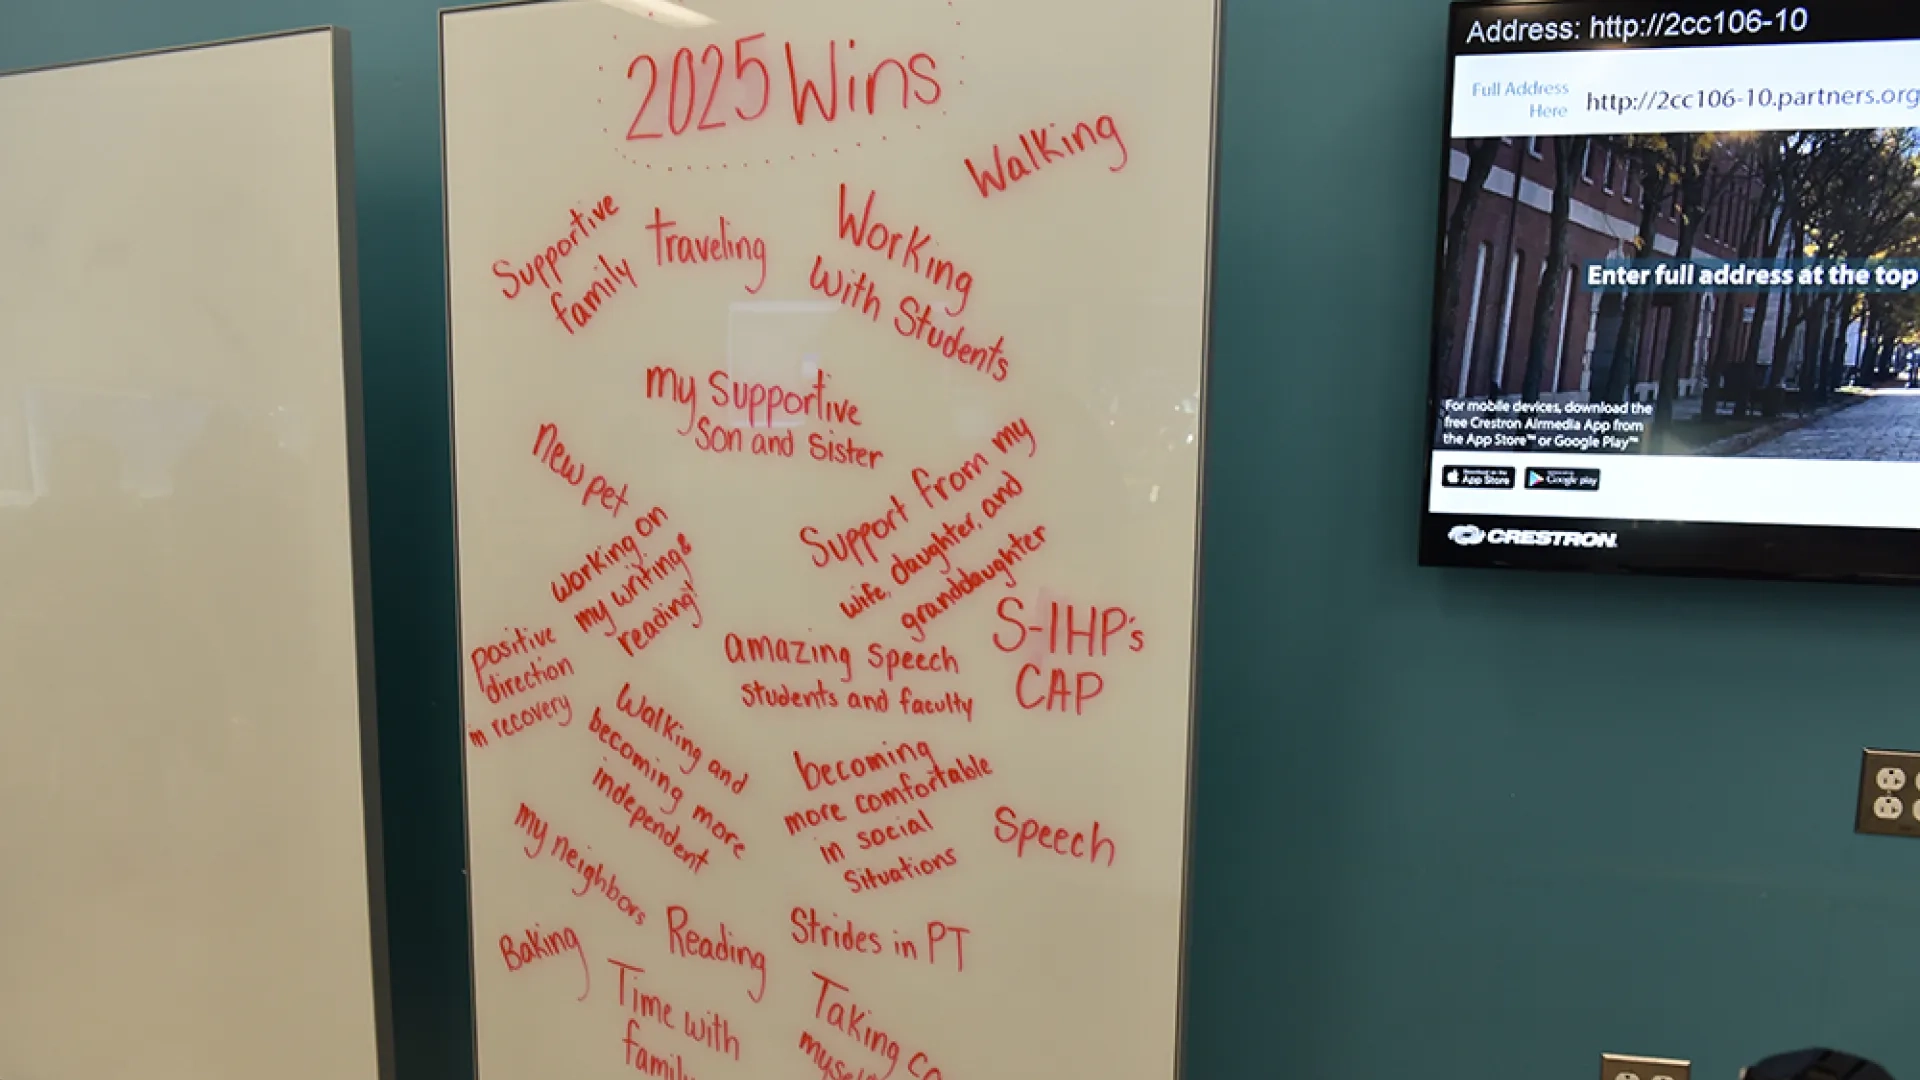 2025 Wins
Walking
Supportive
family
traveling
Working
with Students
my Supportive
Son and Sister
New pet
Support from my
wife, daughter, and
granddaughter
working on
my writing &
reading!
S-IHP's
CAP
amazing speech
students and faculty
positive
direction
in recovery
Walking and
becoming more
independent
becoming
more comfortable
in social
Situations
Speech
my neighbors
Reading
Strides in PT
Baking
Time with
family
Taking
Address: http://2cc106-10
Full Address
Here
http://2cc106-10.partners.org
Enter full address at the top
For mobile devices, download the
free Crestron Airmedia App from
the App Store™ or Google Play™
Download on the
App Store
Google play
CRESTRON